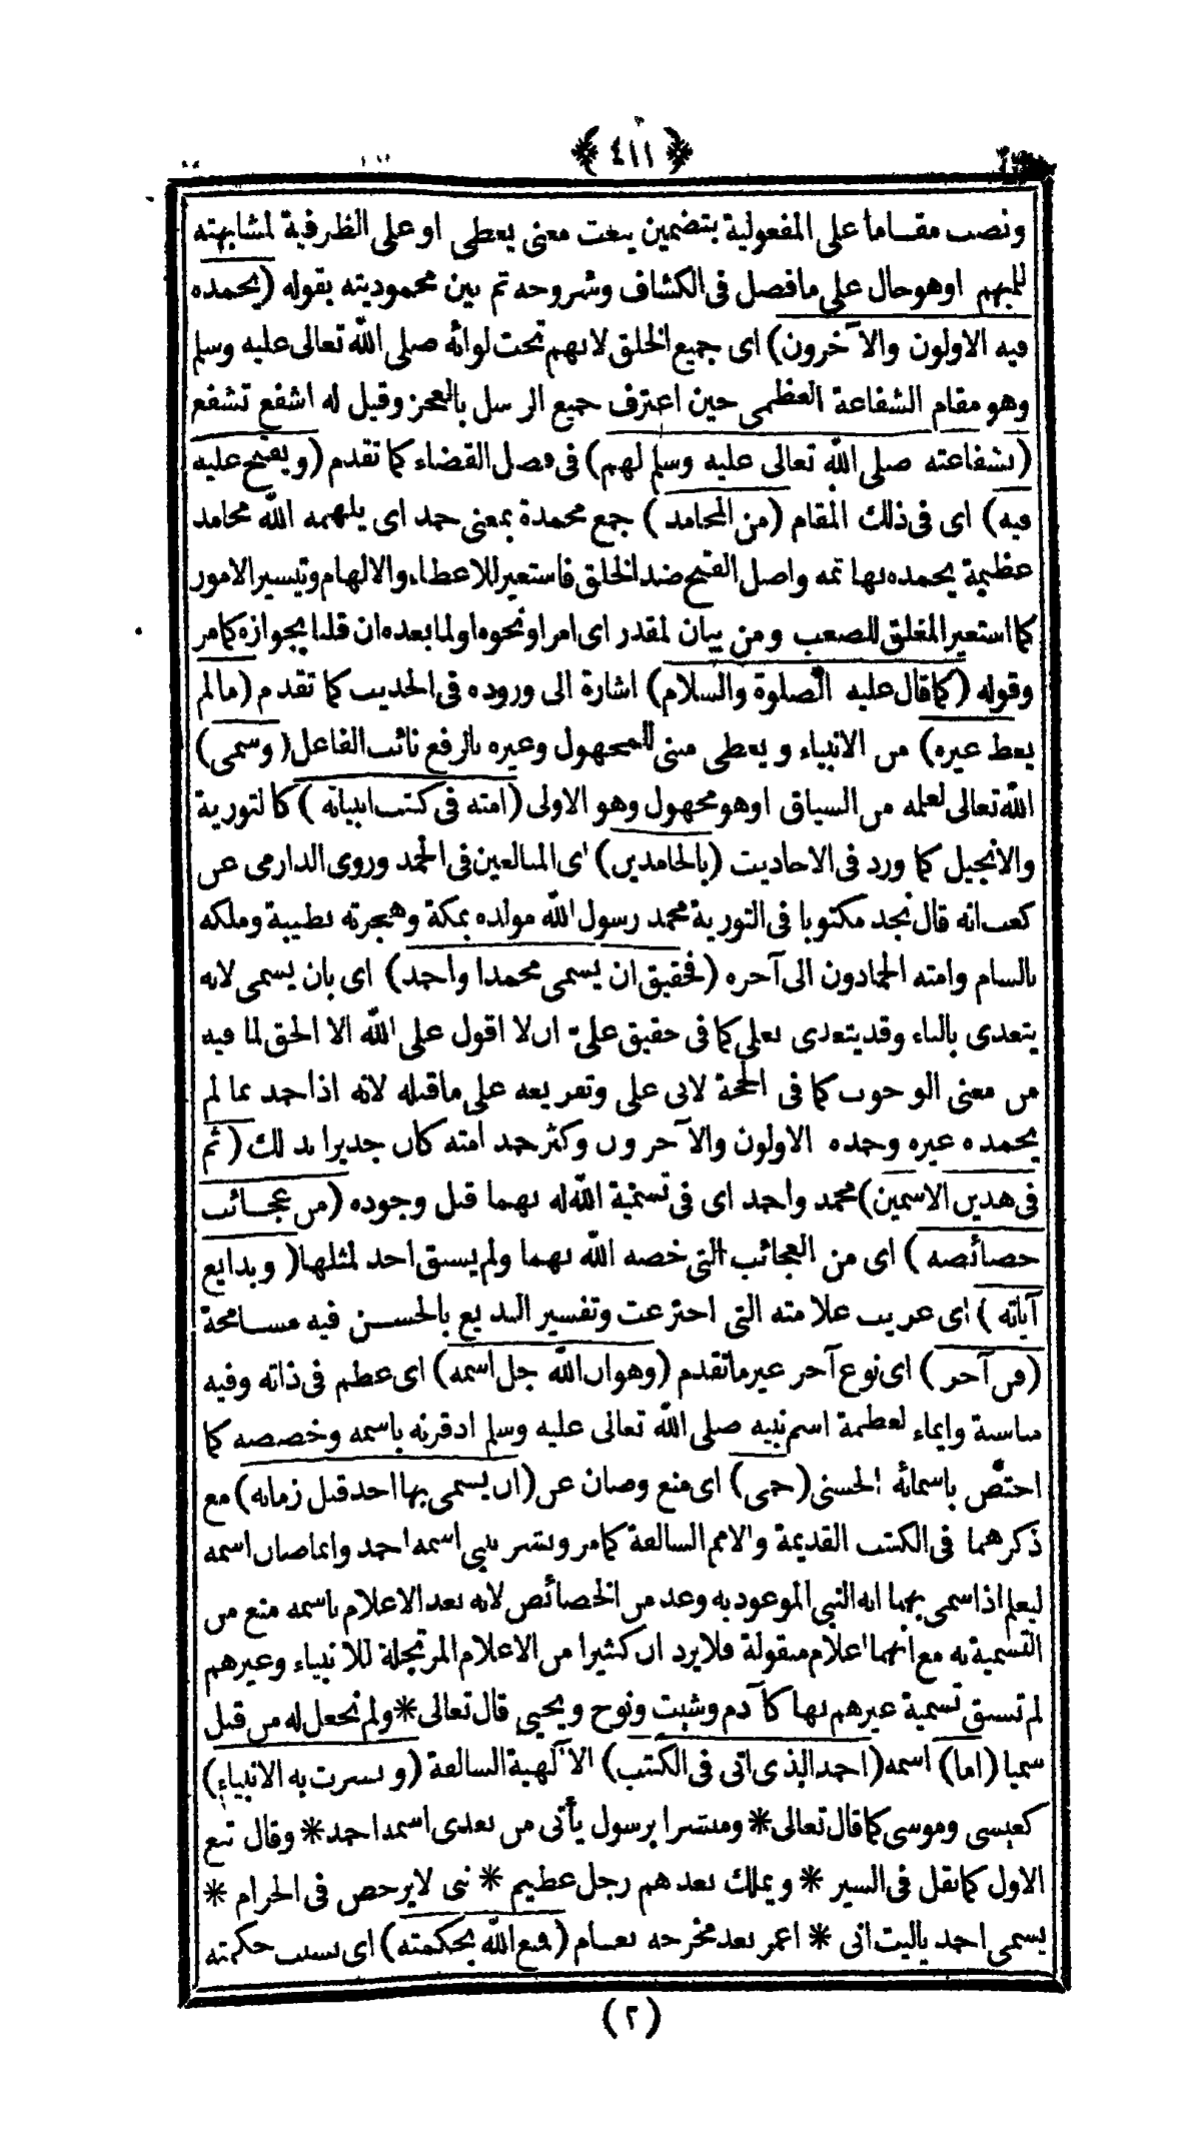 ﴿ ٤١١ ﴾
ونصب مقاما على المفعولية بتضمين يبعث معنى يعطى او على الظرفية لمشابهته
للمبهم اوهوحال على مافصل فى الكشاف وشروحه ثم بين محموديته بقوله (يحمده
فيه الاولون والآخرون) اى جميع الخلق لانهم تحت لوائه صلى الله تعالى عليه وسلم
وهو مقام الشفاعة العظمى حين اعترف جميع الرسل بالعجز وقيل له اشفع تشفع
(بشفاعته صلى الله تعالى عليه وسلم لهم) فى فصل القضاء كما تقدم (ويفتح عليه
فيه) اى فى ذلك المقام (من المحامد) جمع محمدة بمعنى حمد اى يلهمه الله محامد
عظيمة يحمده بها ثمه واصل الفتح ضد الخلق فاستعير للاعطاء والالهام وتيسير الامور
كما استعير المغلق للصعب ومن بيان لمقدر اى امرا ونحوه اولما بعده ان قلنا بجوازه كمامر
وقوله (كماقال عليه الصلوة والسلام) اشارة الى وروده فى الحديث كما تقدم (مالم
يعط غيره) من الانبياء ويعطى مبنى للمجهول وغيره بالرفع نائب الفاعل (وسمى)
الله تعالى لعلمه من السياق اوهو مجهول وهو الاولى (امته فى كتب انبيائه) كالتورية
والانجيل كما ورد فى الاحاديث (بالحامدين) اى المبالغين فى الحمد وروى الدارمى عن
كعب انه قال نجد مكتوبا فى التورية محمد رسول الله مولده بمكة وهجرته بطيبة وملكه
بالشام وامته الحمادون الى آخره (فحقيق ان يسمى محمدا واحمد) اى بان يسمى لانه
يتعدى بالباء وقد يتعدى بعلى كما فى حقيق علىّ ان لا اقول على الله الا الحق لما فيه
من معنى الوجوب كما فى الحجة لابى على وتفريعه على ماقبله لانه اذا حمد بما لم
يحمده غيره وحمده الاولون والآخرون وكثر حمد امته كان جديرا بذلك (ثم
فى هذين الاسمين) محمد واحمد اى فى تسمية الله له بهما قبل وجوده (من عجائب
خصائصه) اى من العجائب التى خصه الله بهما ولم يسبق احد لمثلها (وبدايع
آياته) اى غريب علامته التى اخترعت وتفسير البديع بالحسن فيه مسامحة
(فن آخر) اى نوع آخر غير ماتقدم (وهو ان الله جل اسمه) اى عظم فى ذاته وفيه
مناسبة وايماء لعظمة اسم نبيه صلى الله تعالى عليه وسلم اذ قرنه باسمه وخصصه كما
اختص باسمائه الحسنى (حمى) اى منع وصان عن (ان يسمى بها احد قبل زمانه) مع
ذكرهما فى الكتب القديمة والامم السالفة كمامر وبشر بنبى اسمه احمد وانما صان اسمه
ليعلم اذا سمى بهما انه النبى الموعود به وعد من الخصائص لانه بعد الاعلام باسمه منع من
التسمية به مع انهما اعلام منقولة فلا يرد ان كثيرا من الاعلام المرتجلة للانبياء وغيرهم
لم تسبق تسمية غيرهم بها كآدم وشيث ونوح ويحيى قال تعالى * ولم نجعل له من قبل
سميا (اما) اسمه (احمد الذى اتى فى الكتب) الآلهية السالفة (وبشرت به الانبياء)
كعيسى وموسى كما قال تعالى * ومبشرا برسول يأتى من بعدى اسمه احمد * وقال تبع
الاول كما نقل فى السير * ويملك بعدهم رجل عظيم * نبى لا يرخص فى الحرام *
يسمى احمد ياليت انى * اعمر بعد مخرجه بعام (فمنع الله بحكمته) اى بسبب حكمته
(٢)